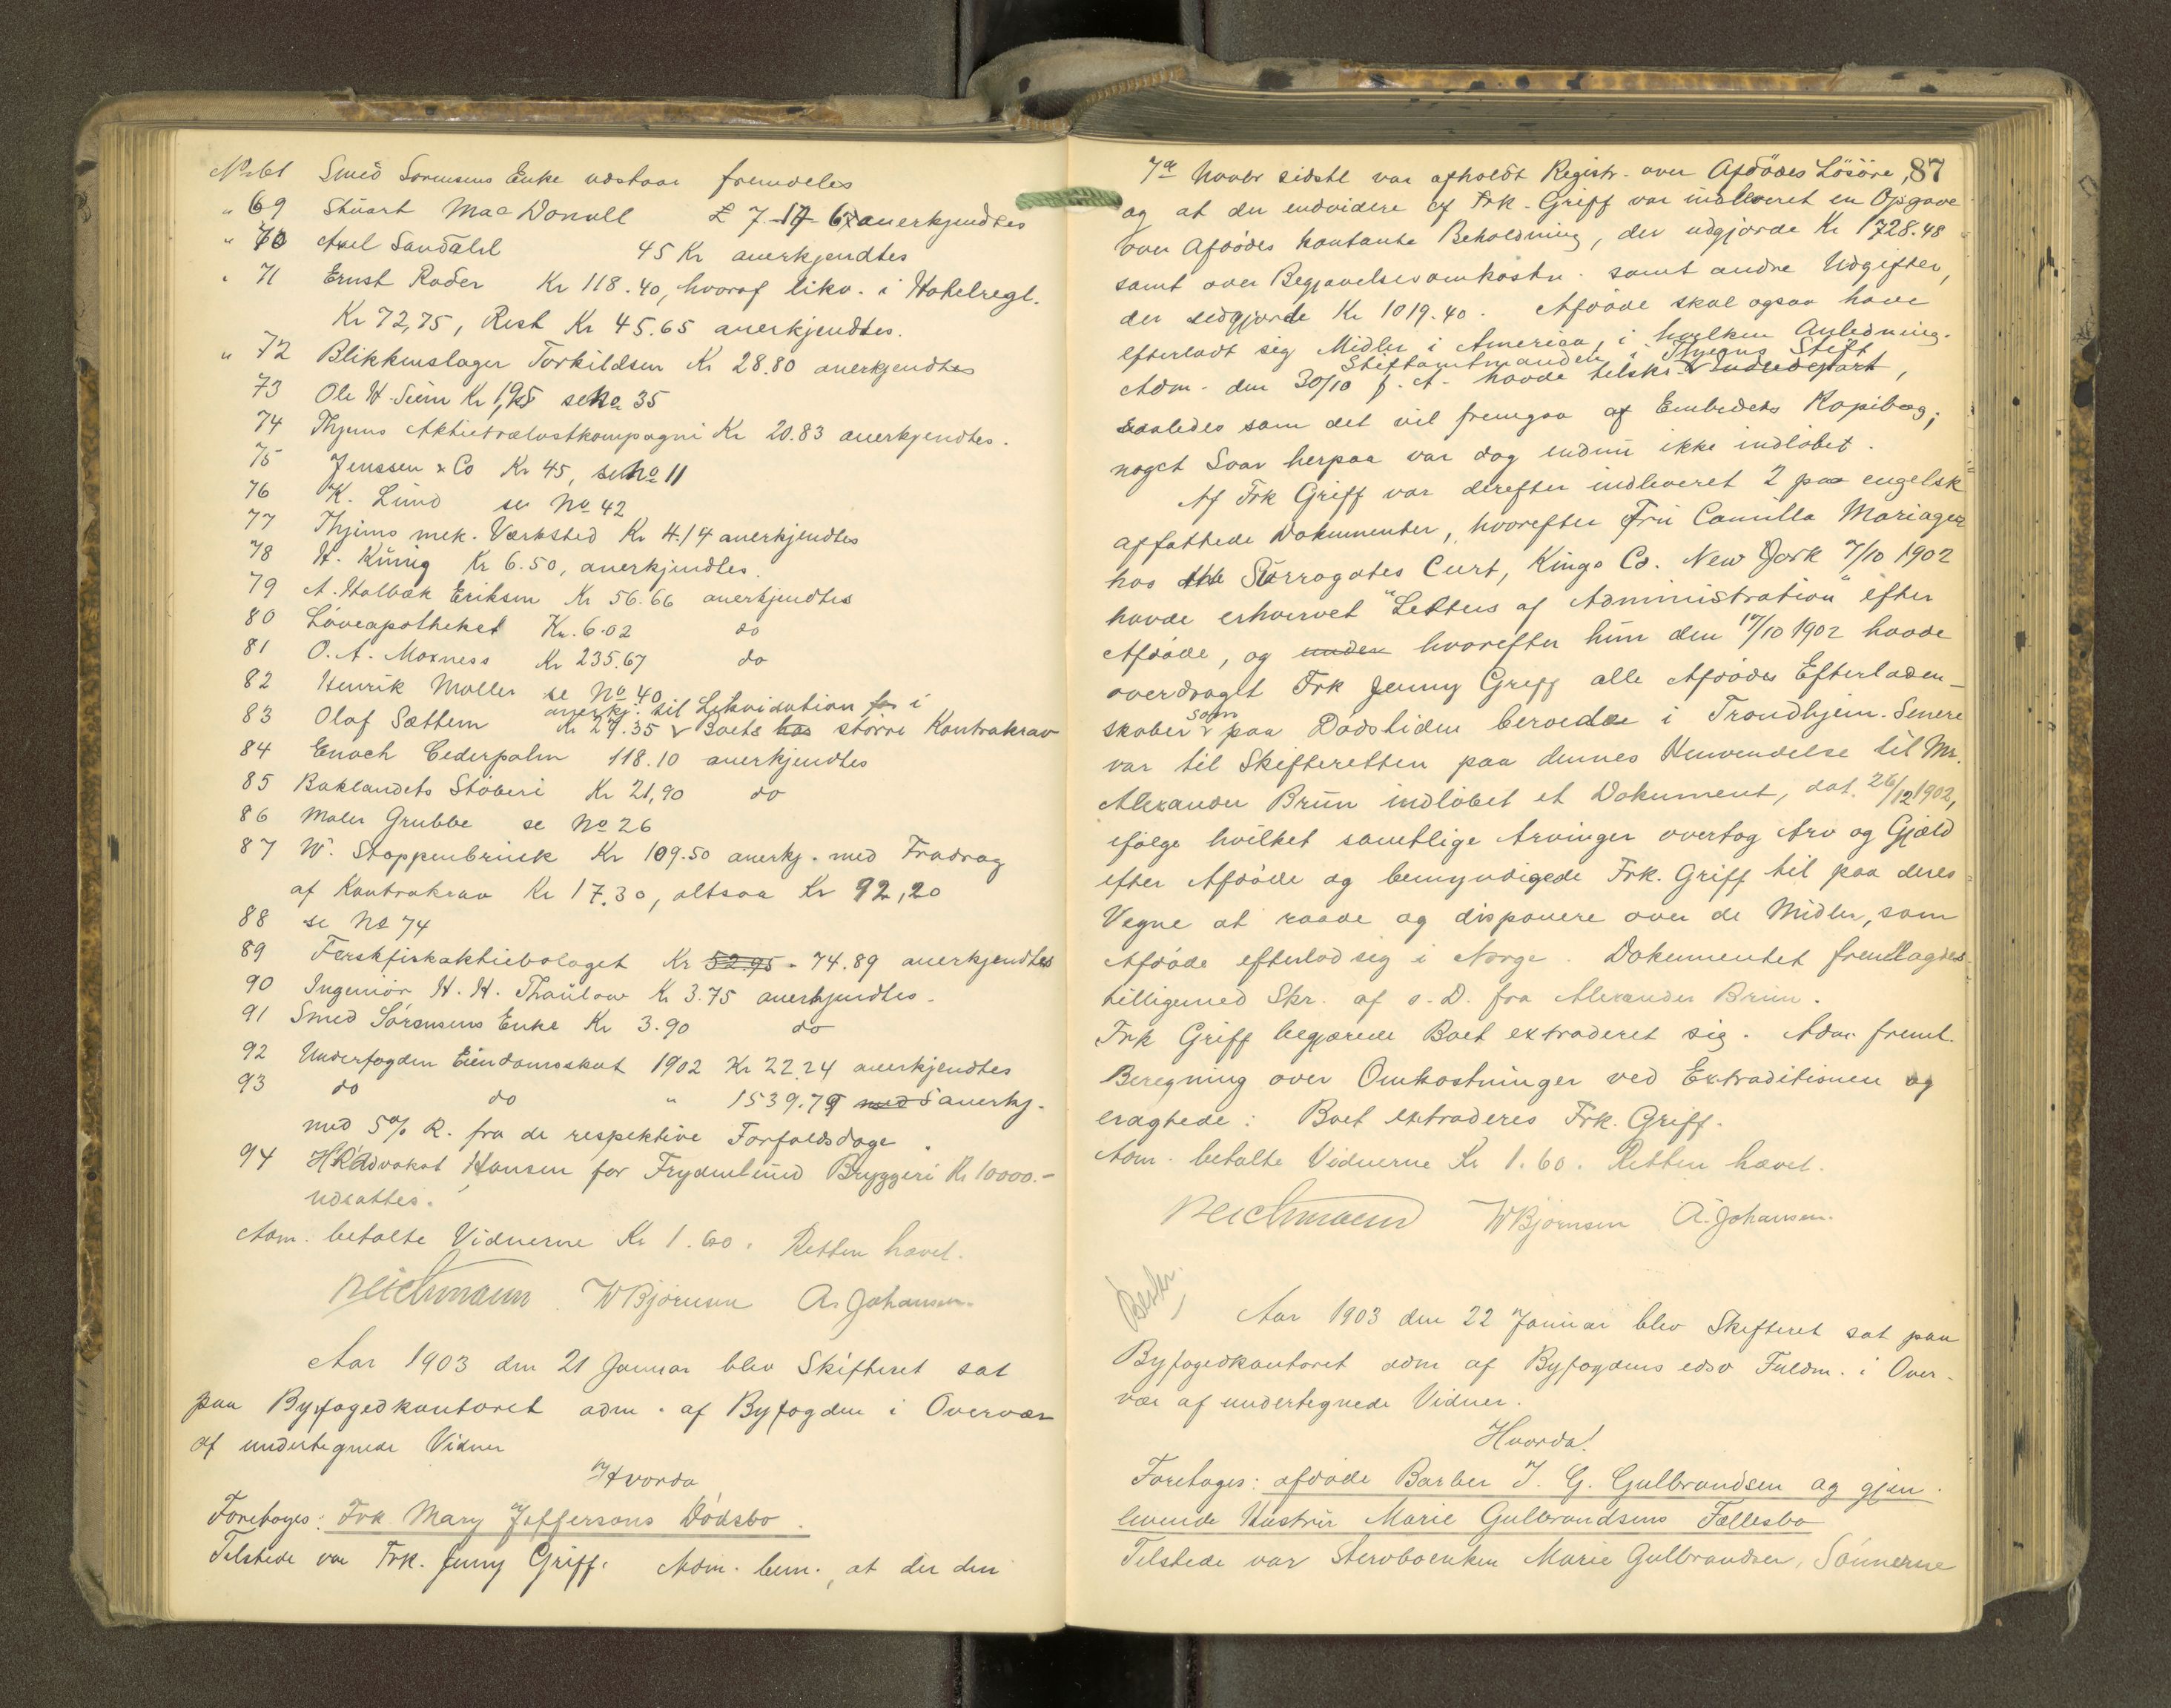 No 61 Smed Sørensens Enke udstaar fremdeles
" 69 Stuart Mac Donull £ 7-17-6 anerkjendtes
" 70 Axel Sandahl 45 Kr anerkjendtes
" 71 Ernst Roder Kr 118.40, hvoraf likv. i Hotelregl.
Kr 72,75, Rest Kr 45.65 anerkjendtes.
" 72 Blikkenslager Torkildsen Kr 28.80 anerkjendtes
73 Ole H. Siim Kr 1,95 se No 35
74 Thjems Aktietrælastkompagni Kr 20.83 anerkjendtes.
75 Jenssen & Co Kr 45, se No 11
76 K. Lund se No 42
77 Thjems mek. Værksted Kr 4.14 anerkjendtes
78 H. Künig Kr 6.50, anerkjendtes.
79 A. Halbæk Eriksen Kr 56.66 anerkjendtes
80 Løveapotheket Kr. 6.02 do
81 O. A. Moxness Kr 235.67 do
82 Henrik Møller se No 40
83 Olaf Sættem Kr 29.35 anerkj. til Likvidation for i Boets has større Kontrakrav
84 Enoch Cederpalm 118.10 anerkjendtes
85 Baklandets Støberi Kr 21,90 do
86 Maler Grubbe se No 26
87 W. Stoppenbrink Kr 109.50 anerkj. med Fradrag
af Kontrakrav Kr 17.30, altsaa Kr 92,20
88 se No 74
89 Ferskfiskaktiebolaget Kr 52.95 - 74.89 anerkjendtes
90 Ingeniør H. H. Thaulow Kr 3.75 anerkjendtes.
91 Smed Sørensens Enke Kr 3.90 do
92 Underfogden Eiendomsskat 1902 Kr 22.24 anerkjendtes
93 do do " 1539.79 med 5 anerkj.
med 5% R. fra de respektive Forfaldsdage.
94 HRAdvokat Hansen for Frydenlund Bryggeri Kr 10000.-
udsattes.
Adm. betalte Vidnerne Kr 1.60. Retten hævet.
Reichmann W Bjørnsen A. Johansen.
Aar 1903 den 21 Januar blev Skifteret sat
paa Byfogedkontoret adm. af Byfogden i Overvær
af undertegnede Vidner
Hvorda
Foretoges: Frk. Mary Jeffersons Dødsbo.
Tilstede var Frk. Jenny Griff. Adm. bem., at der den
87
7de Novbr sidstl var afholdt Registr. over Afdødes Løsøre,
og at der endvidere af Frk. Griff var indleveret en Opgave
over Afdødes kontante Beholdning, der udgjorde Kr 1728.48
samt over Begravelsesomkostn. samt andre Udgifter,
der udgjorde Kr 1019.40. Afdøde skal ogsaa have
efterladt sig Midler i America, i hvilken Anledning
Stiftamtmanden i Thjems Stift
Adm. den 30/10 f. A. havde tilskr. Indredepart,
saaledes som det vil fremgaa af Embedets Kopibog;
noget Svar herpaa var dog endnu ikke indløbet.
Af Frk Griff var derefter indleveret 2 paa engelsk
affattede Dokumenter, hvorefter Fru Camilla Mariager
hos the Surrogates Curt, Kings Co. New York 7/10 1902
havde erhvervet "Letters of Administration" efter
Afdøde, og under hvorefter hun den 17/10 1902 havde
overdraget Frk Jenny Griff alle Afdødes Efterladen-
skaber som paa Dødstiden beroede i Trondhjem. Senere
var til Skifteretten paa dennes Henvendelse til Mr.
Alexander Brun indløbet et Dokument, dat. 26/12 1902,
ifølge hvilket samtlige Arvinger overtog Arv og Gjæld
efter Afdøde og bemyndigede Frk. Griff til paa deres
Vegne at raade og disponere over de Midler, som
Afdøde efterlod sig i Norge. Dokumentet fremlagdes
tilligemed Skr. af s. D. fra Alexander Brun.
Frk Griff begjærede Boet extraderet sig. Adm. freml.
Beregning over Omkostninger ved Extraditionen og
eragtede: Boet extraderes Frk. Griff.
Adm. betalte Vidnerne Kr 1.60. Retten hævet.
Reichmann W Bjørnsen A. Johansen.
Beskr.
Aar 1903 den 22 Januar blev Skifteret sat paa
Byfogedkontoret adm af Byfogdens edsv Fuldm. i Over-
vær af undertegnede Vidner.
Hvorda!
Foretoges: afdøde Barber J. G. Gulbrandsen og gjen-
levende Hustru Marie Gulbrandsens Fællesbo
Tilstede var Stervboenken Marie Gulbrandsen, Sønnerne